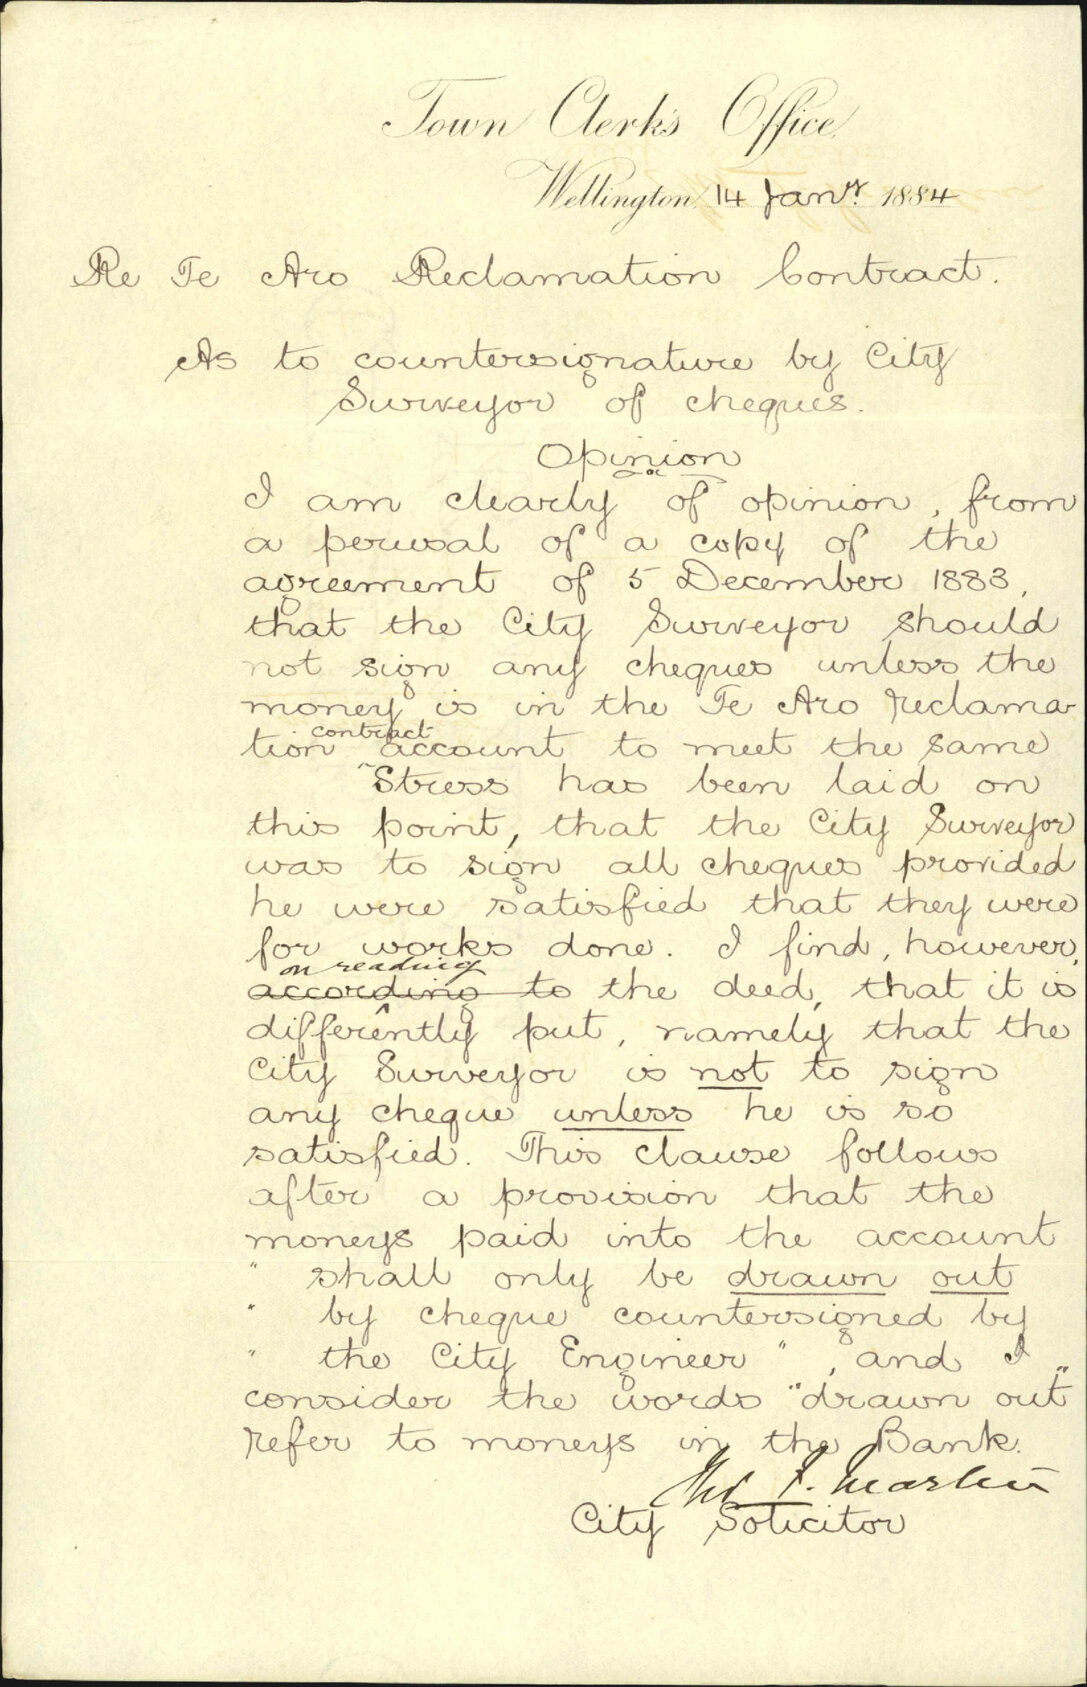 Town Clerk's Office,
Wellington, 14 Jany. 1884
Re Te Aro Reclamation Contract.
As to countersignature by City
Surveyor of cheques.
Opinion
I am clearly of opinion, from
a perusal of a copy of the
agreement of 5 December 1883,
that the City Surveyor should
not sign any cheques unless the
money is in the Te Aro reclama-
contract
tion account to meet the same
Stress has been laid on
this point, that the City Surveyor
was to sign all cheques provided
he were satisfied that they were
for works done. I find, however,
on reading
according to the deed, that it is
differently put, namely that the
City Surveyor is not to sign
any cheque unless he is so
satisfied. This clause follows
after a provision that the
moneys paid into the account
" shall only be drawn out
" by cheque countersigned by
" the City Engineer ", and I
consider the words "drawn out"
refer to moneys in the Bank.
Thos F. Martin
City Solicitor